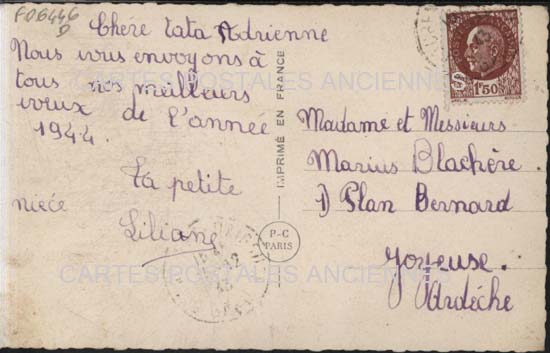 F06446
Chére tata Adrienne
Nous vous envoyons à
tous nos meilleurs
voeux de l'année
1944.
ta petite
nièce
Liliane
IMPRIMÉ EN FRANCE
P-C
PARIS
1F50
Madame et Messieurs
Marius Blachère
Plan Bernard
Joyeuse.
Ardèche
CARTES POSTALES ANCIENNES
CARTES POSTALES ANCIENNES